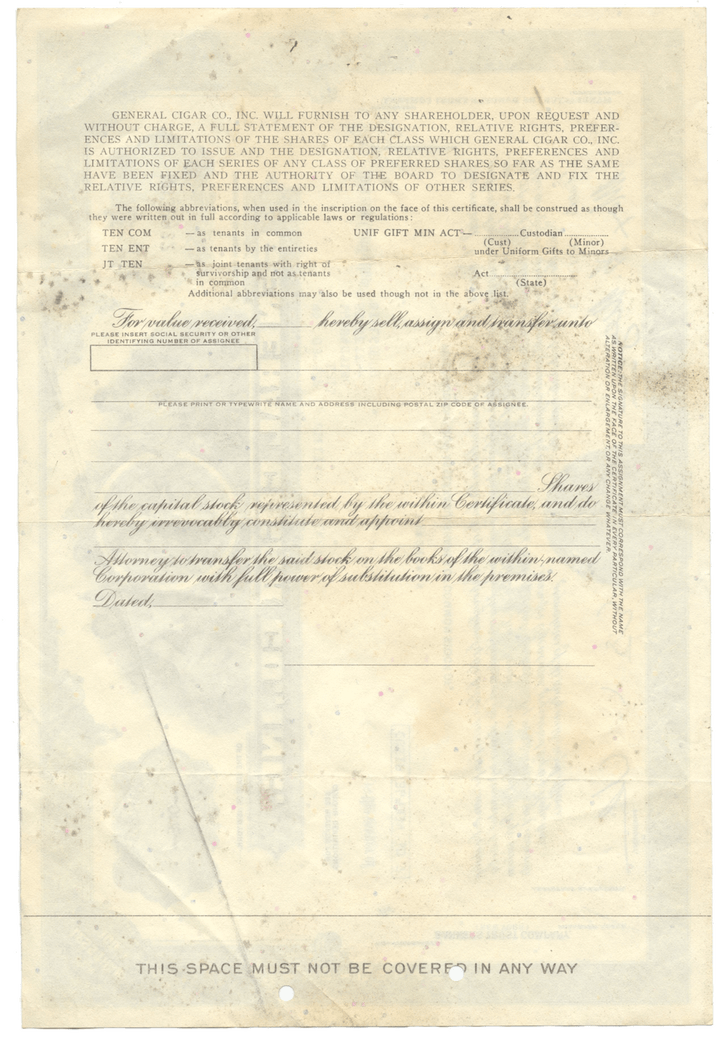 GENERAL CIGAR CO., INC. WILL FURNISH TO ANY SHAREHOLDER, UPON REQUEST AND
WITHOUT CHARGE, A FULL STATEMENT OF THE DESIGNATION, RELATIVE RIGHTS, PREFER-
ENCES AND LIMITATIONS OF THE SHARES OF EACH CLASS WHICH GENERAL CIGAR CO., INC.
IS AUTHORIZED TO ISSUE AND THE DESIGNATION, RELATIVE RIGHTS, PREFERENCES AND
LIMITATIONS OF EACH SERIES OF ANY CLASS OF PREFERRED SHARES SO FAR AS THE SAME
HAVE BEEN FIXED AND THE AUTHORITY OF THE BOARD TO DESIGNATE AND FIX THE
RELATIVE RIGHTS, PREFERENCES AND LIMITATIONS OF OTHER SERIES.
The following abbreviations, when used in the inscription on the face of this certificate, shall be construed as though
they were written out in full according to applicable laws or regulations:
TEN COM —as tenants in common UNIF GIFT MIN ACT—..............Custodian..............
(Cust) (Minor)
TEN ENT —as tenants by the entireties under Uniform Gifts to Minors
JT TEN —as joint tenants with right of
survivorship and not as tenants
in common
Act..............................
(State)
Additional abbreviations may also be used though not in the above list.
For value received, hereby sell, assign and transfer unto
PLEASE INSERT SOCIAL SECURITY OR OTHER
IDENTIFYING NUMBER OF ASSIGNEE
PLEASE PRINT OR TYPEWRITE NAME AND ADDRESS INCLUDING POSTAL ZIP CODE OF ASSIGNEE.
Shares
of the capital stock represented by the within Certificate, and do
hereby irrevocably constitute and appoint
Attorney to transfer the said stock on the books of the within-named
Corporation with full power of substitution in the premises.
Dated,
NOTICE: THE SIGNATURE TO THIS ASSIGNMENT MUST CORRESPOND WITH THE NAME
AS WRITTEN UPON THE FACE OF THE CERTIFICATE IN EVERY PARTICULAR, WITHOUT
ALTERATION OR ENLARGEMENT, OR ANY CHANGE WHATEVER.
THIS SPACE MUST NOT BE COVERED IN ANY WAY